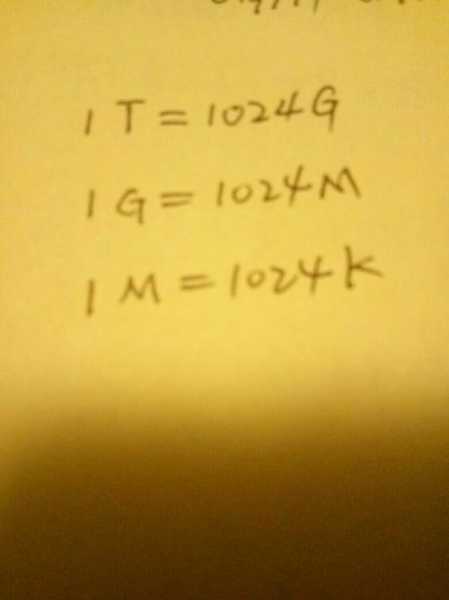 1 T = 1024G
1 G = 1024M
1 M = 1024K